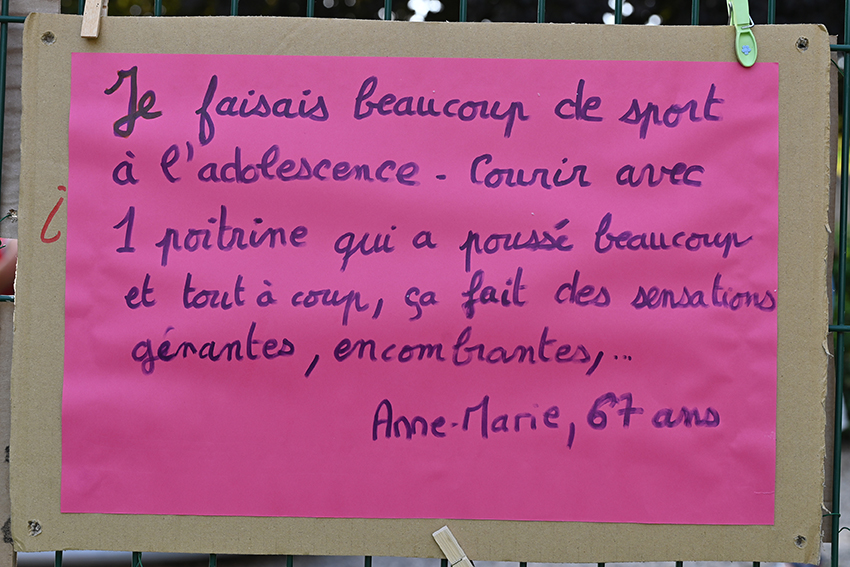 Je faisais beaucoup de sport
à l'adolescence - Courir avec
1 poitrine qui a poussé beaucoup
et tout à coup, ça fait des sensations
gênantes, encombrantes,...
Anne-Marie, 67 ans